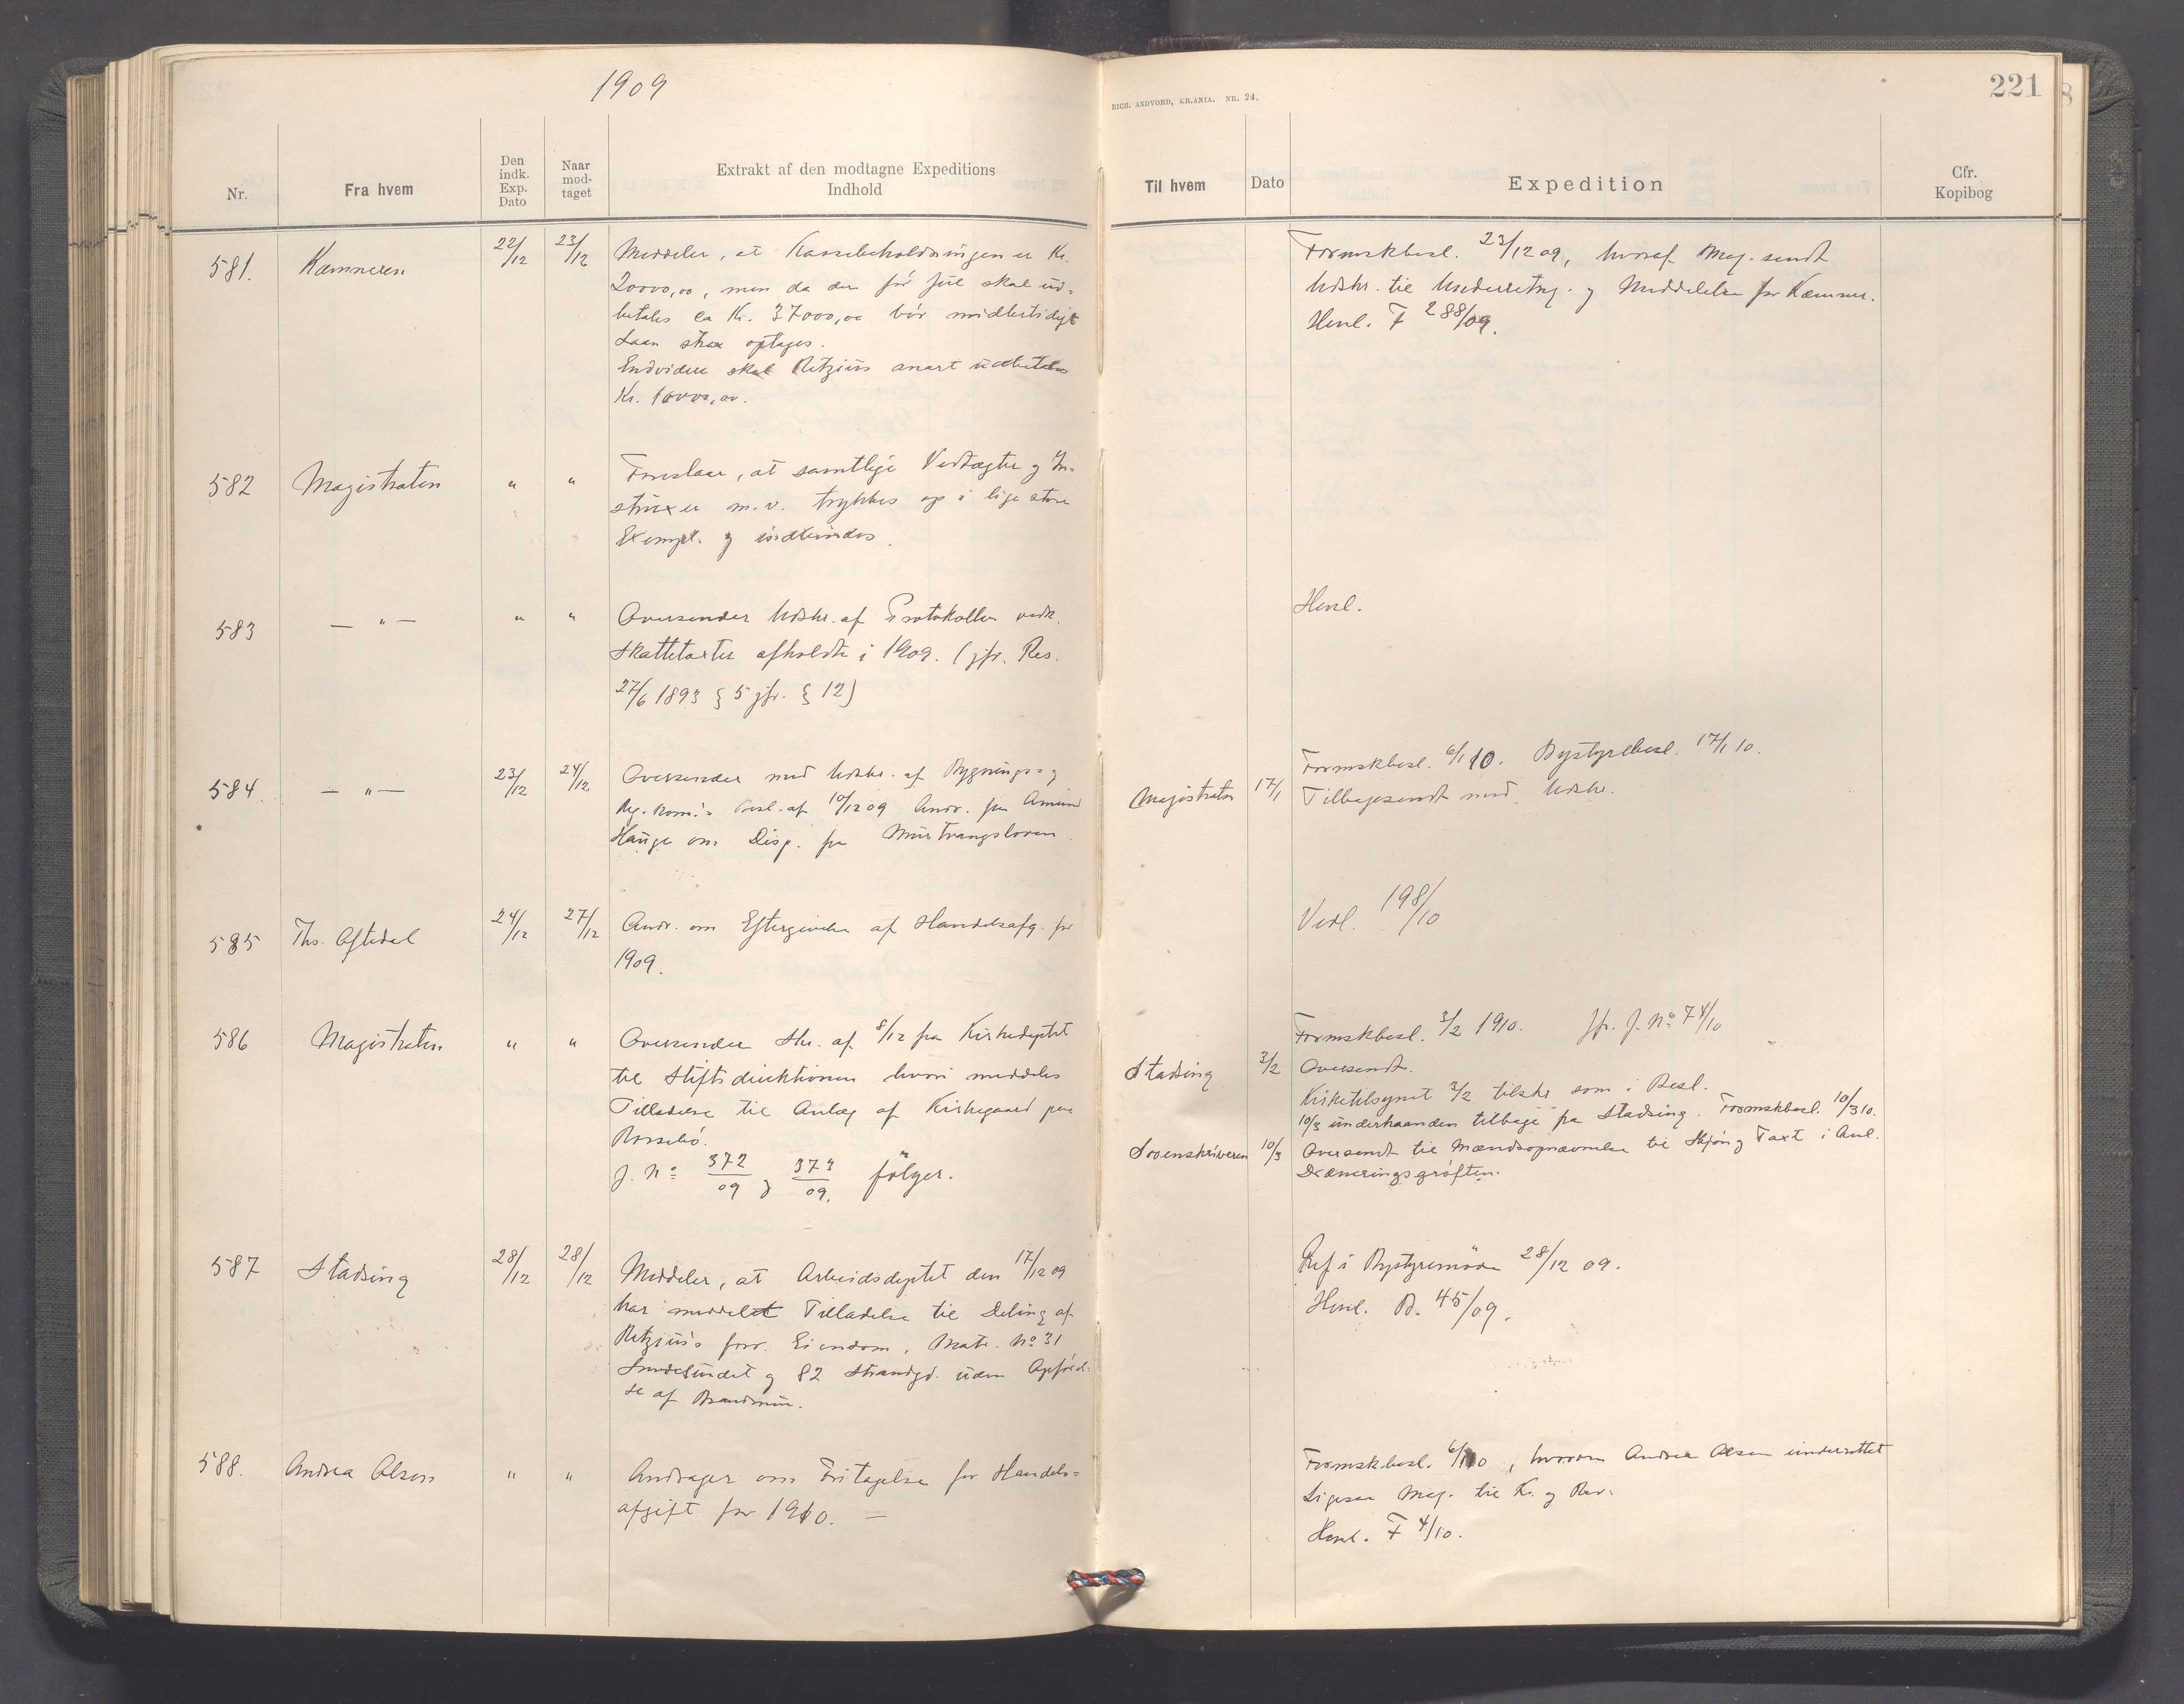 1909
Nr.
Fra hvem
Den
indk.
Exp.
Dato
Naar
mod-
taget
Extrakt af den modtagne Expeditions
Indhold
581.
Kæmneren
22/12
23/12
Meddeler, at Kassebeholdningen er Kr.
20000,00, men da der før Jul skal ud-
betales ca Kr. 37000,00 bör midlertidigt
Laan strax optages.
Endvidere skal Retzius snart udbetales
Kr. 10000,00.
582
Magistraten
"
"
Foreslaar, at samtlige Vedtægter og In-
struxer m. v. trykkes op i lige store
Exempl. og indbindes.
583
— " —
"
"
Oversender Udskr. af Protokollen vedk.
Skattetaxter afholdte i 1909. (jfr. Res.
27/6 1893 § 5 jfr. § 12)
584.
— " —
23/12
24/12
Oversender med Udskr. af Bygnings- og
Reg. Kom.'s Besl. af 10/12 09 Andr. fra Amund
Hauge om Disp. fra Murtvangsloven.
585
Ths. Oftedal
24/12
27/12
Andr. om Eftergivelse af Handelsafg. for
1909.
586
Magistraten
"
"
Oversender Skr. af 8/12 fra Kirkedeptet
til Stiftsdirektionen hvori meddeles
Tilladelse til Anlæg af Kirkegaard paa
Rossebö.
J. No 372/09 og 373/09. fölger.
587
Stadsing
28/12
28/12
Meddeler, at Arbeidsdeptet den 17/12 09
har meddelt Tilladelse til Deling af
Retzius's forr. Eiendom, Matr. No 31
Smedesundet og 82 Strandgd. uden Opförel-
se af Brandmur.
588.
Andrea Olsen
"
"
Andrager om Fritagelse for Handels-
afgift for 1910. —
RICH. ANDVORD, KR.ANIA. NR. 24.
221
Til hvem
Dato
Expedition
Cfr.
Kopibog
Formskbesl. 23/12 09, hvoraf Mag. sendt
Udskr. til Underretng. og Meddelelse for Kæmner.
Henl. F 288/09.
Henl.
Formskbesl. 6/1 10. Bystyrebesl. 17/1 10.
Magistraten
17/1
Tilbagesendt med Udskr.
Vedl. 198/10
Formskbesl. 3/2 1910. Jfr. J. No 74/10
Stadsing
3/2
Oversendt.
Kirketilsynet 3/2 tilskr som i Besl.
10/3 underhaanden tilbage fra Stadsing. Formskbesl. 10/3 10.
Sorenskriveren
10/3
Oversendt til Mændsopnævnelse til Skjön og Taxt i Anl.
Dræneringsgröften.
Ref i Bystyremöde 28/12 09.
Henl. B. 45/09.
Formsk.besl. 6/1 10, hvorom Andrea Olsen underrettet
Ligesaa Mag. til K. og Rev.
Henl. F 4/10.